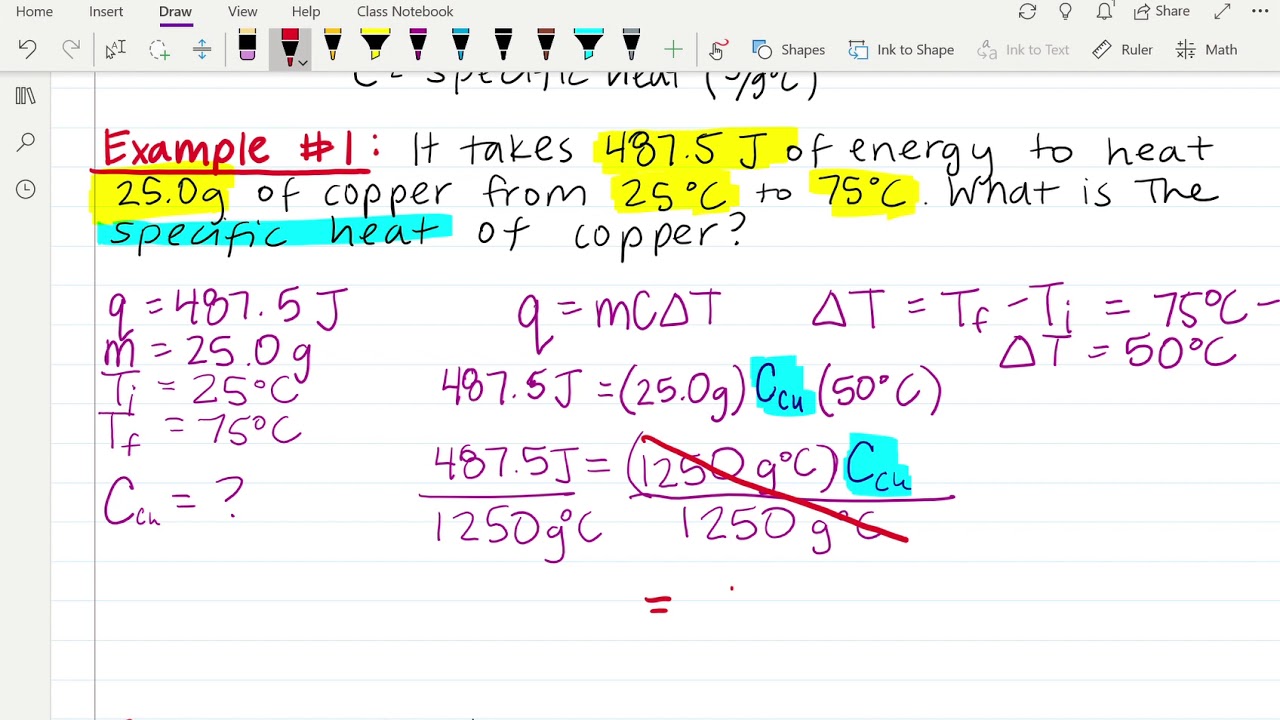 Home Insert Draw View Help Class Notebook Share
Shapes Ink to Shape Ink to Text Ruler Math
C = specific heat (J/g°C)
Example #1: It takes 487.5 J of energy to heat
25.0g of copper from 25°C to 75°C. What is the
specific heat of copper?
q = 487.5 J
m = 25.0 g
Ti = 25°C
Tf = 75°C
Ccu = ?
q = mCΔT
ΔT = Tf - Ti = 75°C -
ΔT = 50°C
487.5J = (25.0g) Ccu (50°C)
487.5J = (1250 g°C) Ccu
1250g°C 1250 g°C
=